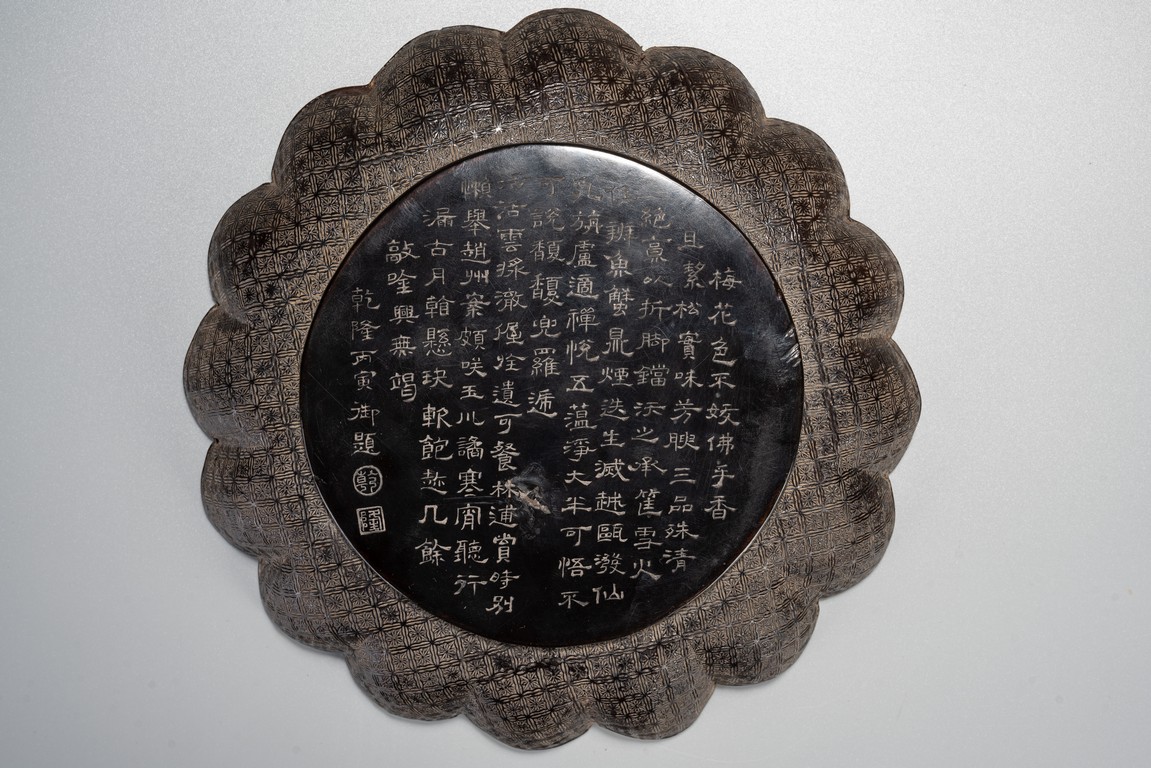 梅花色不妖佛手香
且絜松實味芳腴三品殊清
絕烹以折脚鐺沃之承筐雪火
候辨魚蟹鼎煙迭生滅越甌潑仙
乳旃廬適禪悅五蘊淨大半可悟不
可說馥馥兜羅遞
活沾雲漿澈偓佺遺可餐林逋賞時別
懶舉趙州案頗咲玉川譎寒宵聽行
漏古月看懸玦軟飽趁几餘
敲唫興無竭
乾隆丙寅御題
乾
隆